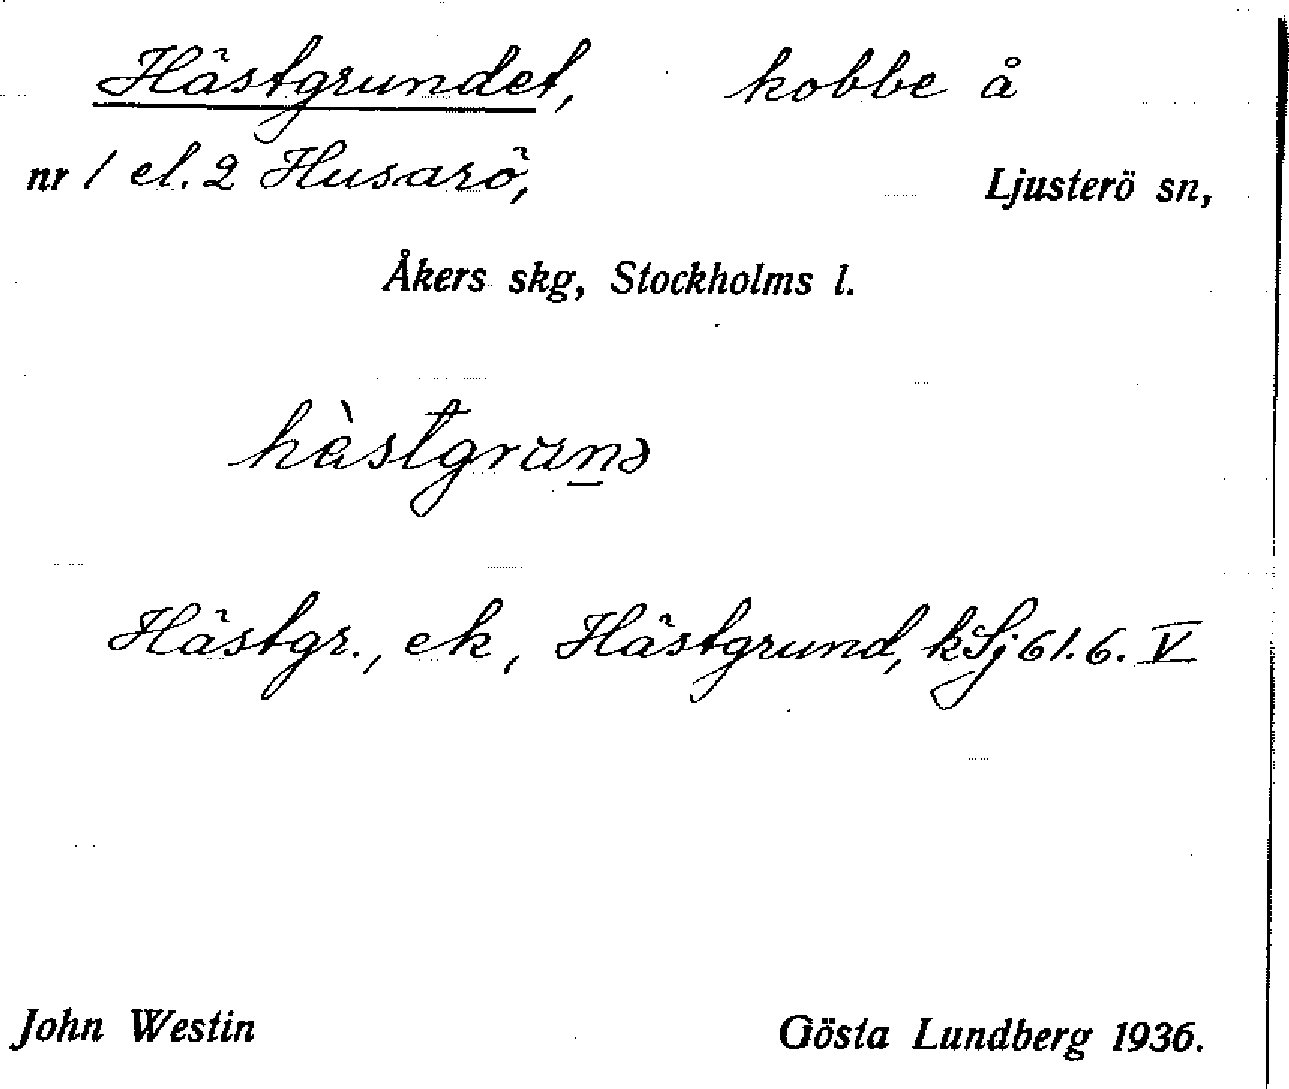 Hästgrundet, kobbe å
nr 1 el. 2 Husarö, Ljusterö sn,
Åkers skg, Stockholms l.
hàstgrunə
Hästgr., ek, Hästgrund, kSj 61.6. V
John Westin Gösta Lundberg 1936.